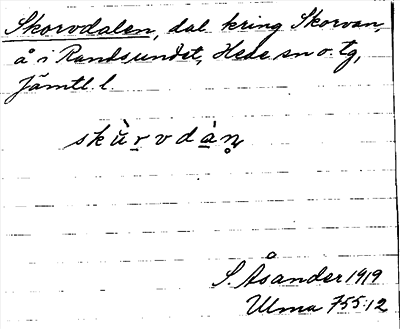 Skorvdalen, dal kring Skorvan,
å i Randsundet, Hede sn o. tg,
Jämtl. l.
skùr̠vdà̠n̥
S. Åsander 1919
Ulma 755:12